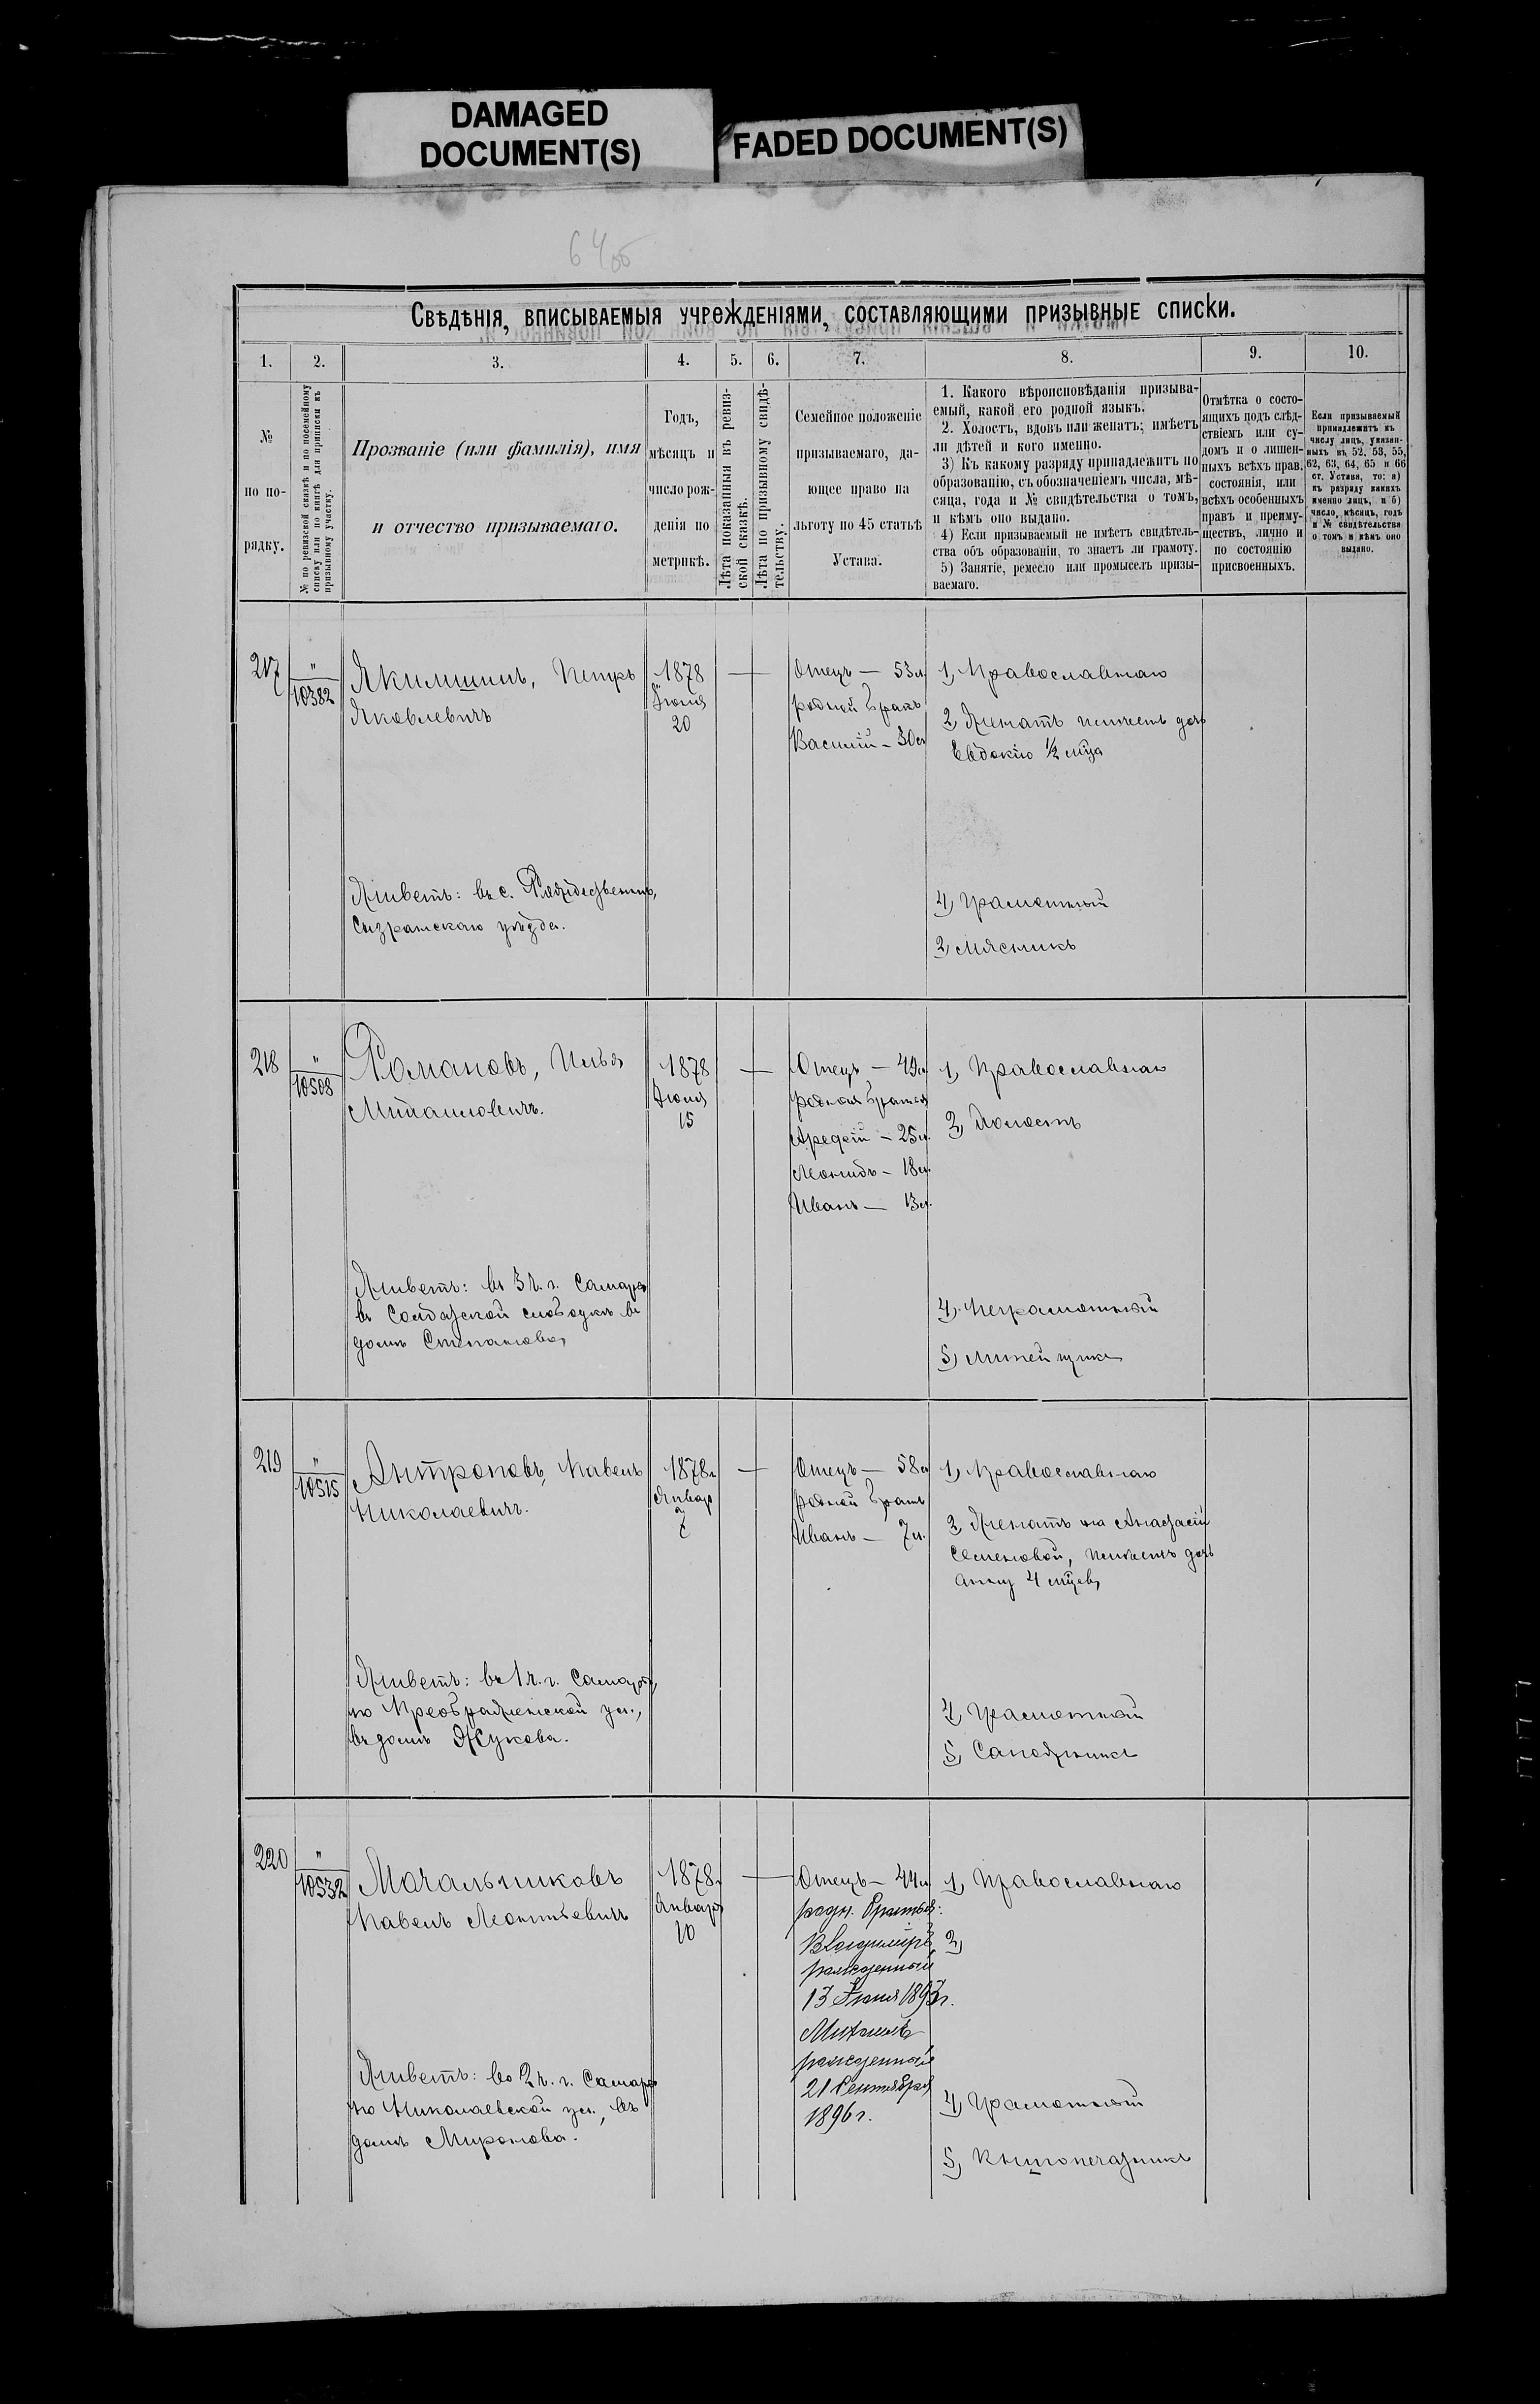 DAMAGED
DOCUMENT(S)
FADED DOCUMENT(S)
64об
Свѣдѣнія, вписываемыя учрежденіями, составляющими призывные списки.
1. 2. 3. 4. 5. 6. 7. 8. 9. 10.
№
по по-
рядку.
№ по ревизской сказкѣ и по посемейному
списку или по книгѣ для приписки къ
призывному участку.
Прозваніе (или фамилія), имя
и отчество призываемаго.
Годъ,
мѣсяцъ и
число рож-
денія по
метрикѣ.
Лѣта показанныя въ ревиз-
ской сказкѣ.
Лѣта по призывному свидѣ-
тельству.
Семейное положеніе
призываемаго, да-
ющее право на
льготу по 45 статьѣ
Устава.
1. Какого вѣроисповѣданія призыва-
емый, какой его родной языкъ.
2. Холостъ, вдовъ или женатъ; имѣетъ
ли дѣтей и кого именно.
3) Къ какому разряду принадлежитъ по
образованію, съ обозначеніемъ числа, мѣ-
сяца, года и № свидѣтельства о томъ,
и кѣмъ оно выдано.
4) Если призываемый не имѣетъ свидѣтель-
ства объ образованіи, то знаетъ ли грамоту.
5) Занятіе, ремесло или промыселъ призы-
ваемаго.
Отмѣтка о состо-
ящихъ подъ слѣд-
ствіемъ или су-
домъ и о лишен-
ныхъ всѣхъ правъ
состоянія, или
всѣхъ особенныхъ
правъ и преиму-
ществъ, лично и
по состоянію
присвоенныхъ.
Если призываемый
принадлежитъ къ
числу лицъ, указан-
ныхъ въ 52, 53, 55,
62, 63, 64, 65 и 66
ст. Устава, то: а)
къ разряду какихъ
именно лицъ, и б)
число, мѣсяцъ, годъ
и № свидѣтельства
о томъ и кѣмъ оно
выдано.
217
"
10382
Якимшинъ, Петръ
Яковлевичъ
1878
Іюня
20
Отецъ — 53 л
родной братъ
Василій – 30 л
1) Православнаго
2) Женатъ имѣетъ дочь
Евдокію ½ мѣца
Живетъ: въ с. Рождественѣ,
Сызранскаго уѣзда.
4) Грамотный
2) Мясникъ
218
"
10508
Романовъ, Илья
Михаиловичъ.
1878
Іюля
15
Отецъ — 49 л
родныя братья
Арефій – 25 л.
Леонидъ – 18 л.
Иванъ — 13 л.
1) Православнаго
2) Холостъ
Живетъ: въ 3 ч. г. Самары
въ Солдатской слободкѣ въ
домѣ Степанова
4) Неграмотный
5) Литейщикъ
219
"
10515
Антроповъ, Павелъ
Николаевичъ.
1878 г
Январ
я
7
Отецъ — 58 л
Родной братъ
Иванъ — 7 л.
1) Православнаго
2) Женатъ на Анастасіи
Семеновой, имѣетъ дочь
Анну 4 мцевъ
Живетъ: въ 1 ч. г. Самары,
по Преображенской ул.,
въ домѣ Жукова.
4) Грамотный
5) Сапожникъ
220
"
10532
Мочальниковъ
Павелъ Леонтьевичъ
1878 г
Января
10
Отецъ – 44 л
родн. братья:
Владиміръ
рожденный
13 Іюля 1893 г.
Михаилъ
рожденный
21 Сентября
1896 г.
1) Православнаго
2)
Живетъ: во 2 ч. г. Самары
по Николаевской ул., въ
домѣ Миронова.
4) Грамотный
5) Книгопечатникъ